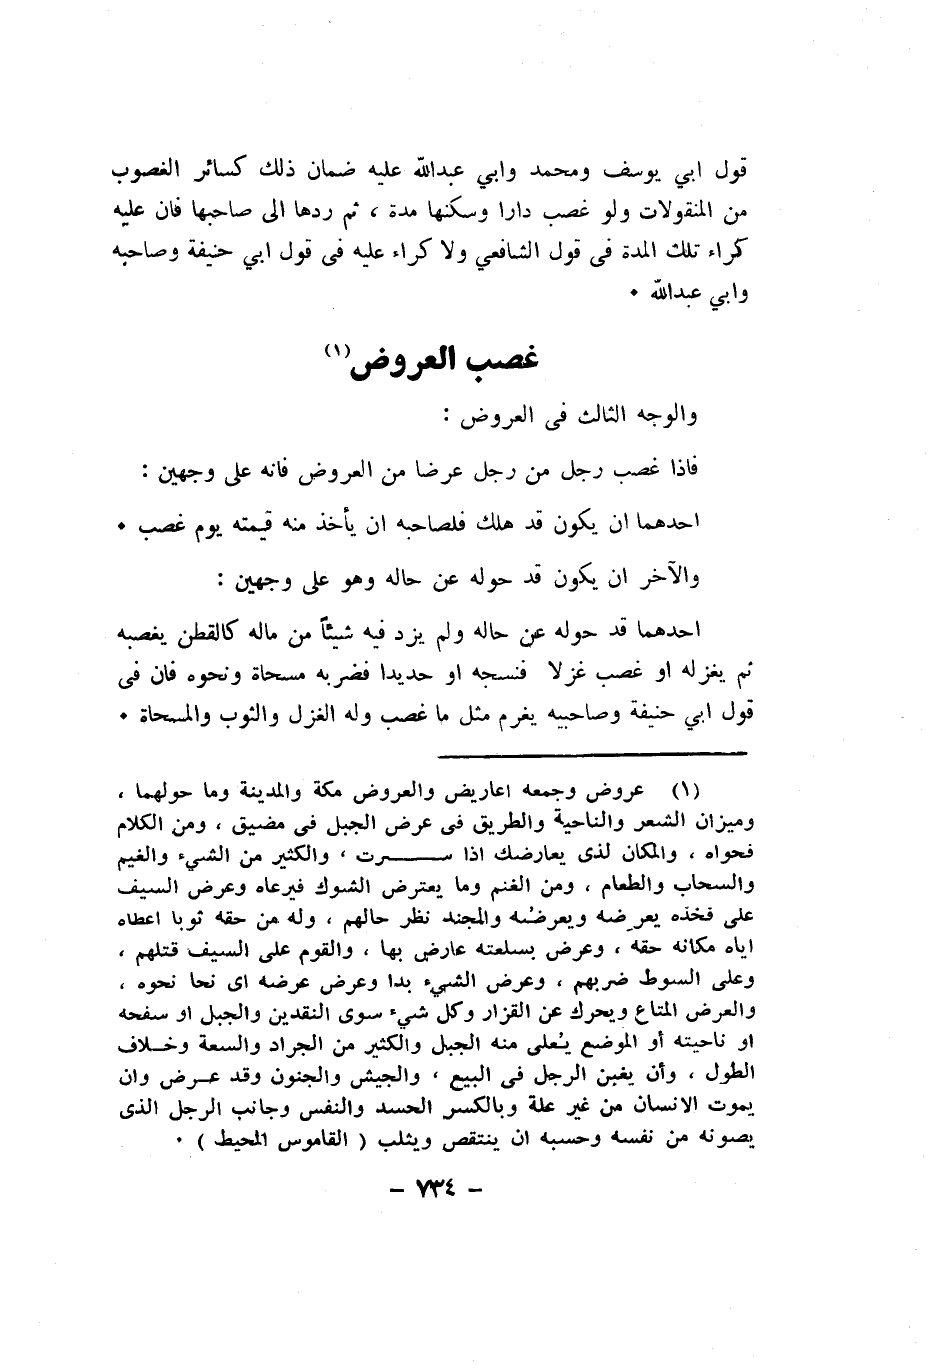 قول ابي يوسف ومحمد وابي عبدالله عليه ضمان ذلك كسائر الغصوب
من المنقولات ولو غصب دارا وسكنها مدة ، ثم ردها الى صاحبها فان عليه
كراء تلك المدة فى قول الشافعي ولا كراء عليه فى قول ابي حنيفة وصاحبه
وابي عبدالله ٠
غصب العروض(١)
والوجه الثالث فى العروض :
فاذا غصب رجل من رجل عرضا من العروض فانه على وجهين :
احدهما ان يكون قد هلك فلصاحبه ان يأخذ منه قيمته يوم غصب ٠
والآخر ان يكون قد حوله عن حاله وهو على وجهين :
احدهما قد حوله عن حاله ولم يزد فيه شيئاً من ماله كالقطن يغصبه
ثم يغزله او غصب غزلا فنسجه او حديدا فضربه مسحاة ونحوه فان فى
قول ابي حنيفة وصاحبيه يغرم مثل ما غصب وله الغزل والثوب والمسحاة ٠
(١) عروض وجمعه اعاريض والعروض مكة والمدينة وما حولهما ،
وميزان الشعر والناحية والطريق فى عرض الجبل فى مضيق ، ومن الكلام
فحواه ، والمكان لذى يعارضك اذا ســـــرت ، والكثير من الشيء والغيم
والسحاب والطعام ، ومن الغنم وما يعترض الشوك فيرعاه وعرض السيف
على فخذه يعرضه ويعرضه والمجند نظر حالهم ، وله من حقه ثوبا اعطاه
اياه مكانه حقه ، وعرض بسلعته عارض بها ، والقوم على السيف قتلهم ،
وعلى السوط ضربهم ، وعرض الشيء بدا وعرض عرضه اى نحا نحوه ،
والعرض المتاع ويحرك عن القزار وكل شيء سوى النقدين والجبل او سفحه
او ناحيته أو الموضع يتعلى منه الجبل والكثير من الجراد والسعة وخــلاف
الطول ، وأن يغبن الرجل فى البيع ، والجيش والجنون وقد عــرض وان
يموت الانسان من غير علة وبالكسر الحسد والنفس وجانب الرجل الذى
يصونه من نفسه وحسبه ان ينتقص ويثلب ( القاموس المحيط ) ٠
– ٧٣٤ –